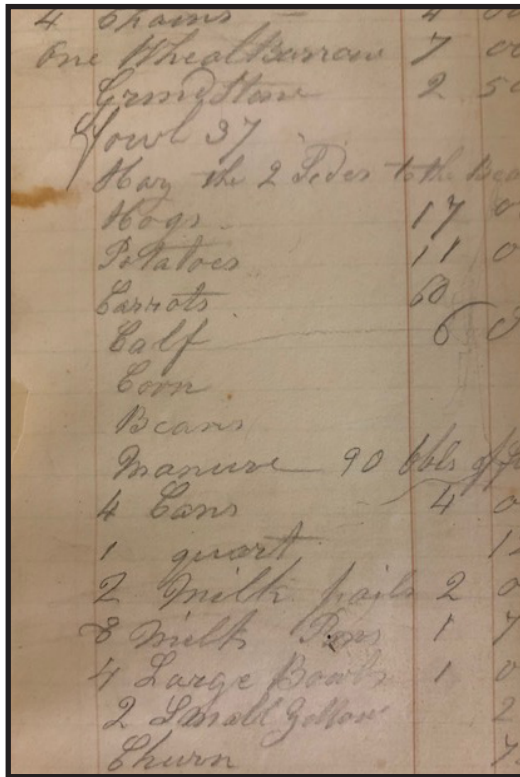 4 Chains 4 00
One Wheal Barrow 7 00
Grind Stone 2 50
Fowl 37
Hay the 2 Sides to the
Hogs 17 0
Potatoes 11 0
Carrots 60
Calf 6 0
Corn
Beans
Manure 90 bbls of
4 Cans 4 0
1 quart 12
2 Milk pails 2 0
8 Milk Pans 1 7
4 Large Bowls 1 0
2 Small Yellow 2
Churn 7